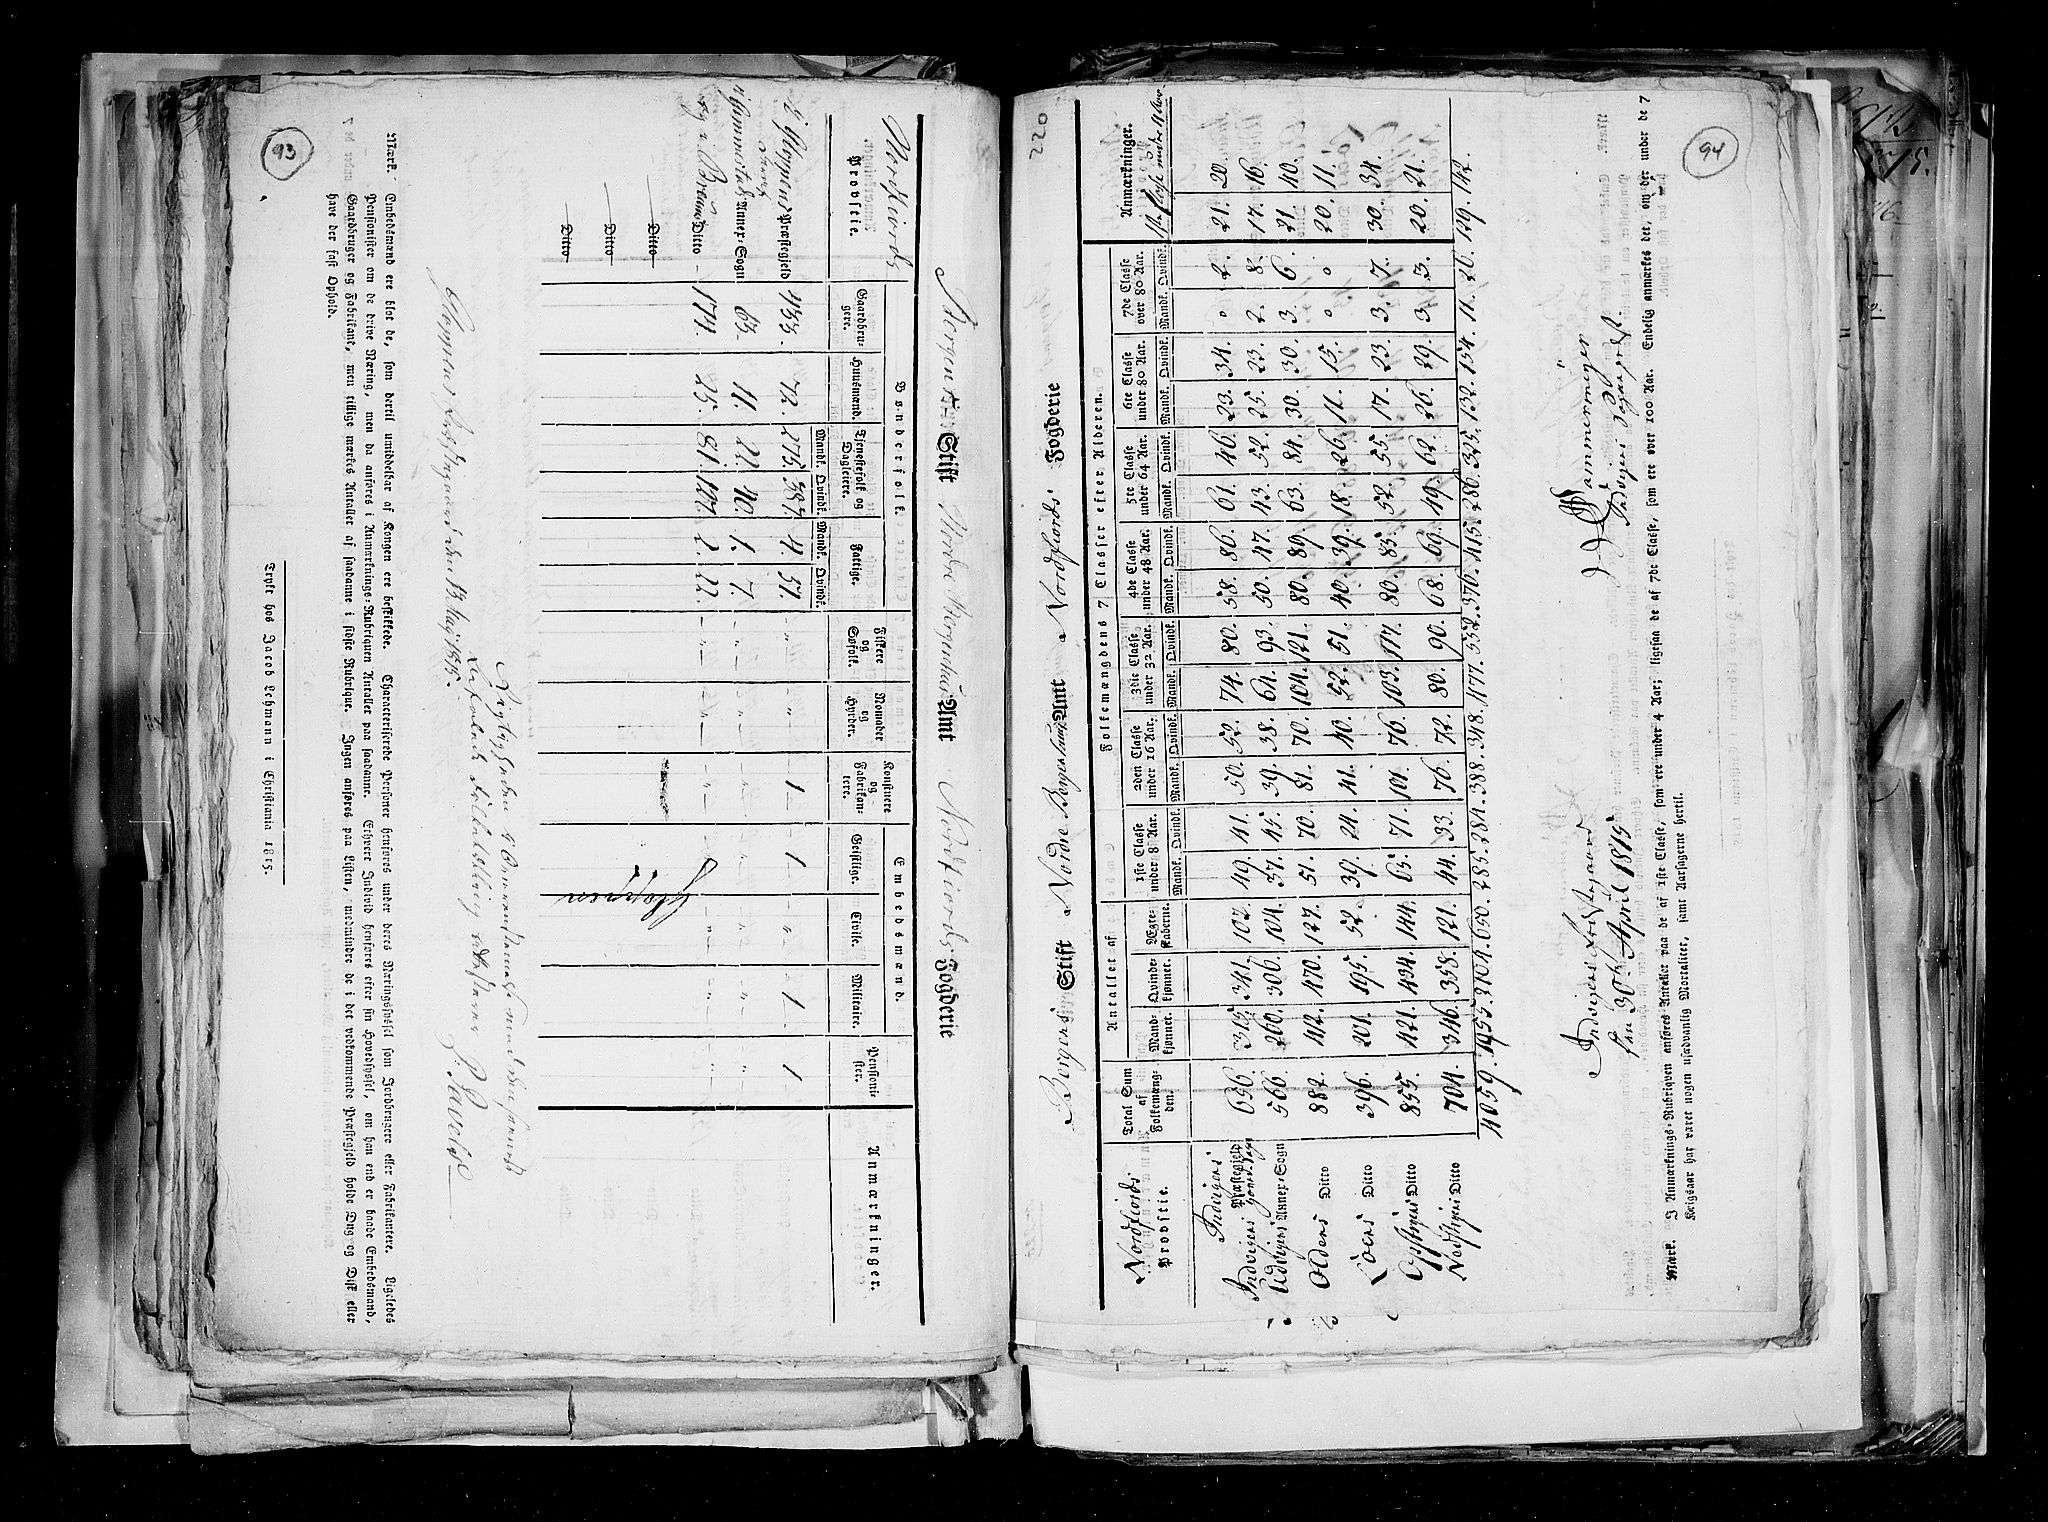 93
Bergens Stift Nordre Bergenhuus Amt Nordfiords Fogderie
Nordfiords Provstie. | Bønderfolk. | Embedsmænd. | Anmærkninger.
Gaardbrugere. | Huusmænd. | Tjenestefolk og Dagleiere. Mandk. Qvindk. | Fattige. Mandk. Qvindk. | Fiskere og Søfolk. | Nomader og Hyrder. | Konstnere og Fabrikantere. | Geistlige. | Civile. | Militaire. | Pensionister.
Gloppens Præstegield | 433. | 72. | 275. | 387. | 4. | 51. | " | " | 1 | 1 | " | 1 | 1
Gimmestads Annex-Sogn | 63. | 11. | 22. | 40. | 1. | 7. | " | " | " | " | " | " | "
og i Breims Ditto | 174. | 25. | 81. | 107. | 2. | 22. | " | " | " | " | " | " | "
Ditto
Ditto
Ditto
Gloppen
Rigtigheden af
Gloppens Præstegaard den 13 Maj 1815.
Mærk. Embedsmænd ere blot de, som dertil umiddelbar af Kongen ere beskikkede. Characteriserede Personer henføres under deres Næringshussel som Jordbrugere eller Fabrikantere. Ligeledes
Pensionister om de drive Næring, men da anføres i Anmærknings-Rubriquen Antallet paa saadanne. Ethvert Individ henføres efter sin Hovedsyssel, om han end er baade Embedsmand,
Gaardbruger og Fabrikant, men tillige mærkes Antallet af saadanne i sidste Rubrique. Ingen anføres paa Listen, medmindre de i det vedkommende Præstegield holde Dug og Disk eller
have der fast Ophold.
Trykt hos Jacob Lehmann i Christiania 1815.
94
220
Bergens Stift Nordre Bergenhuus Amt Nordfiords Fogderie
Nordfiords Provstie. | Total Sum af Folkemængden. | Antallet af | Folkemængdens 7 Classer efter Alderen. | Anmærkninger.
Mandkjønnet. | Qvindekjønnet. | Ægteskaberne. | 1ste Classe under 8 Aar. Mandk. Qvindk. | 2den Classe under 16 Aar. Mandk. Qvindk. | 3die Classe under 32 Aar. Mandk. Qvindk. | 4de Classe under 48 Aar. Mandk. Qvindk. | 5te Classe under 64 Aar. Mandk. Qvindk. | 6te Classe under 80 Aar. Mandk. Qvindk. | 7de Classe over 80 Aar. Mandk. Qvindk. | 1ste Classe under 4 Aar
Indvigens Præstegield
Indvigens Hoved Sogn | 656. | 315. | 341. | 107. | 49. | 41. | 50. | 52. | 74. | 80. | 58. | 86. | 61. | 46. | 23. | 34. | 0 | 2. | 21. | 20.
Udvigens Annex-Sogn | 566. | 260. | 306. | 104. | 37. | 45. | 39. | 38. | 64. | 93. | 50. | 47. | 43. | 52. | 25. | 23. | 2. | 8. | 17. | 16.
Oldens Ditto | 882. | 412. | 470. | 127. | 51. | 70. | 81. | 70. | 104. | 121. | 80. | 89. | 63. | 84. | 30. | 30. | 3. | 6. | 21. | 40.
Loens Ditto | 396. | 201. | 195. | 52. | 39. | 24. | 41. | 40. | 52. | 51. | 40. | 39. | 18. | 26. | 11. | 15. | 0 | 0 | 20. | 11.
Opstryns Ditto | 855. | 421. | 434. | 144. | 65. | 71. | 101. | 76. | 103. | 117. | 80. | 85. | 52. | 55. | 17. | 23. | 3. | 7. | 30. | 34.
Nedstryns Ditto | 704. | 346. | 358. | 121. | 44. | 33. | 76. | 72. | 80. | 90. | 68. | 69. | 49. | 62. | 26. | 29. | 3. | 3. | 20. | 21.
4059. | 1955. | 2104. | 650. | 285. | 284. | 388. | 348. | 477. | 552. | 376. | 415. | 286. | 325. | 132. | 154. | 11. | 26. | 129. | 142.
Indvigens Præstegaard
den 30te April 1815
Sammermeyer
Mærk. I Anmærknings-Rubriqven anføres Antallet paa de af 1ste Classe, som ere under 4 Aar; ligesaa de af 7de Classe, som ere over 100 Aar. Endelig anmærkes det, om der under de 7
Krigsaar har været nogen usædvanlig Mortalitet, samt Aarsagerne hertil.